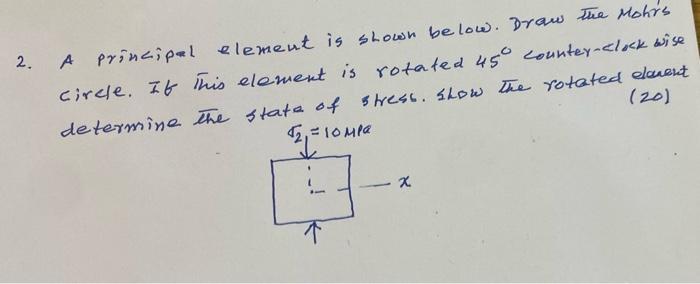 2. A principal element is shown below. Draw the Mohr's
circle. If This element is rotated 45° counter-clock wise
determine the state of stress. show the rotated element
(20)
σ2 = 10 MPa
x